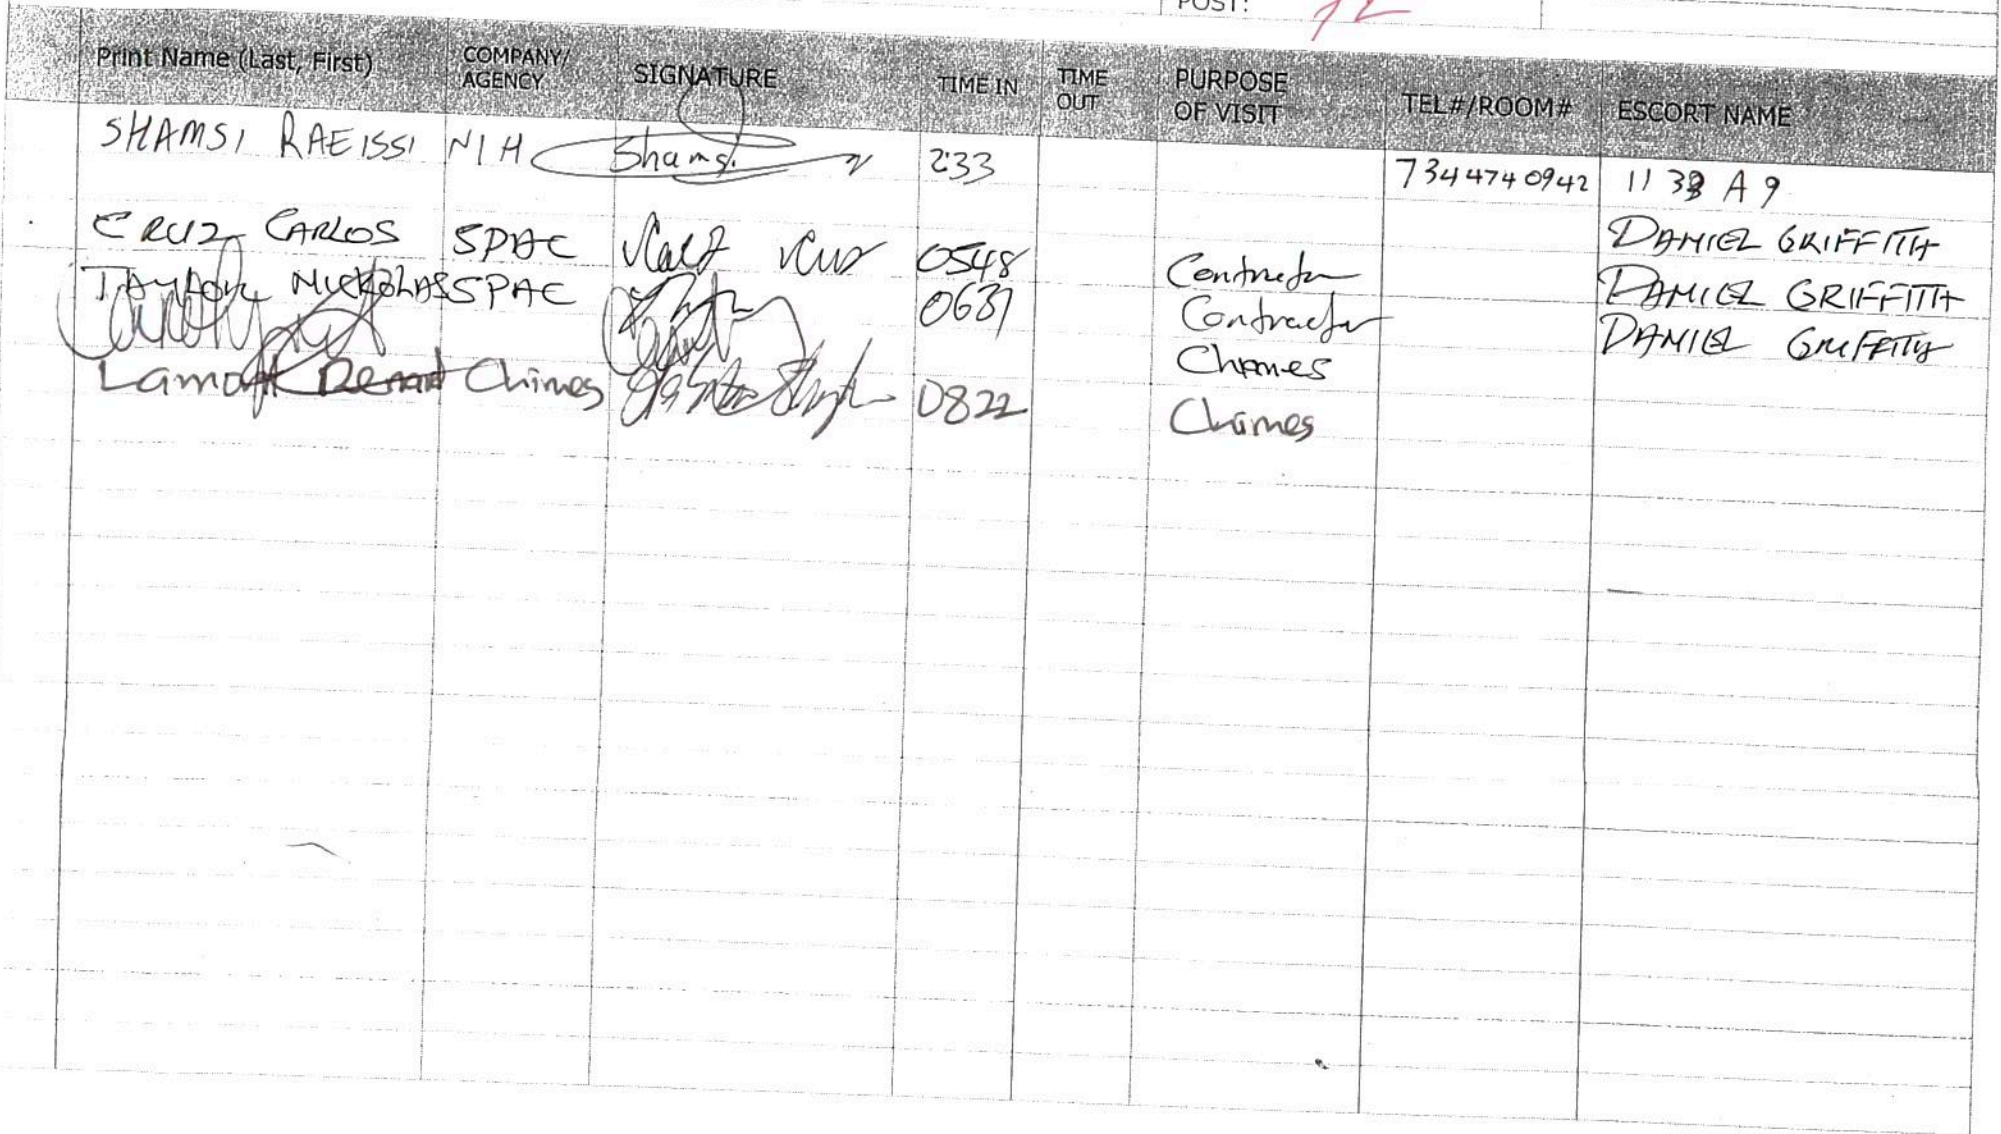 POST: 12
Print Name (Last, First) COMPANY/ AGENCY SIGNATURE TIME IN TIME OUT PURPOSE OF VISIT TEL#/ROOM# ESCORT NAME
SHAMSI RAEISSI NIH Shamsi 2:33 7344740942 1133 A 9
CRUZ CARLOS SPAC 0548 Contractor DANIEL GRIFFITH
TAYLOR NICKOLAS SPAC 0637 Contractor DANIEL GRIFFITH
Chimes DANIEL GRIFFITH
Lamont Chimes 0822 Chimes